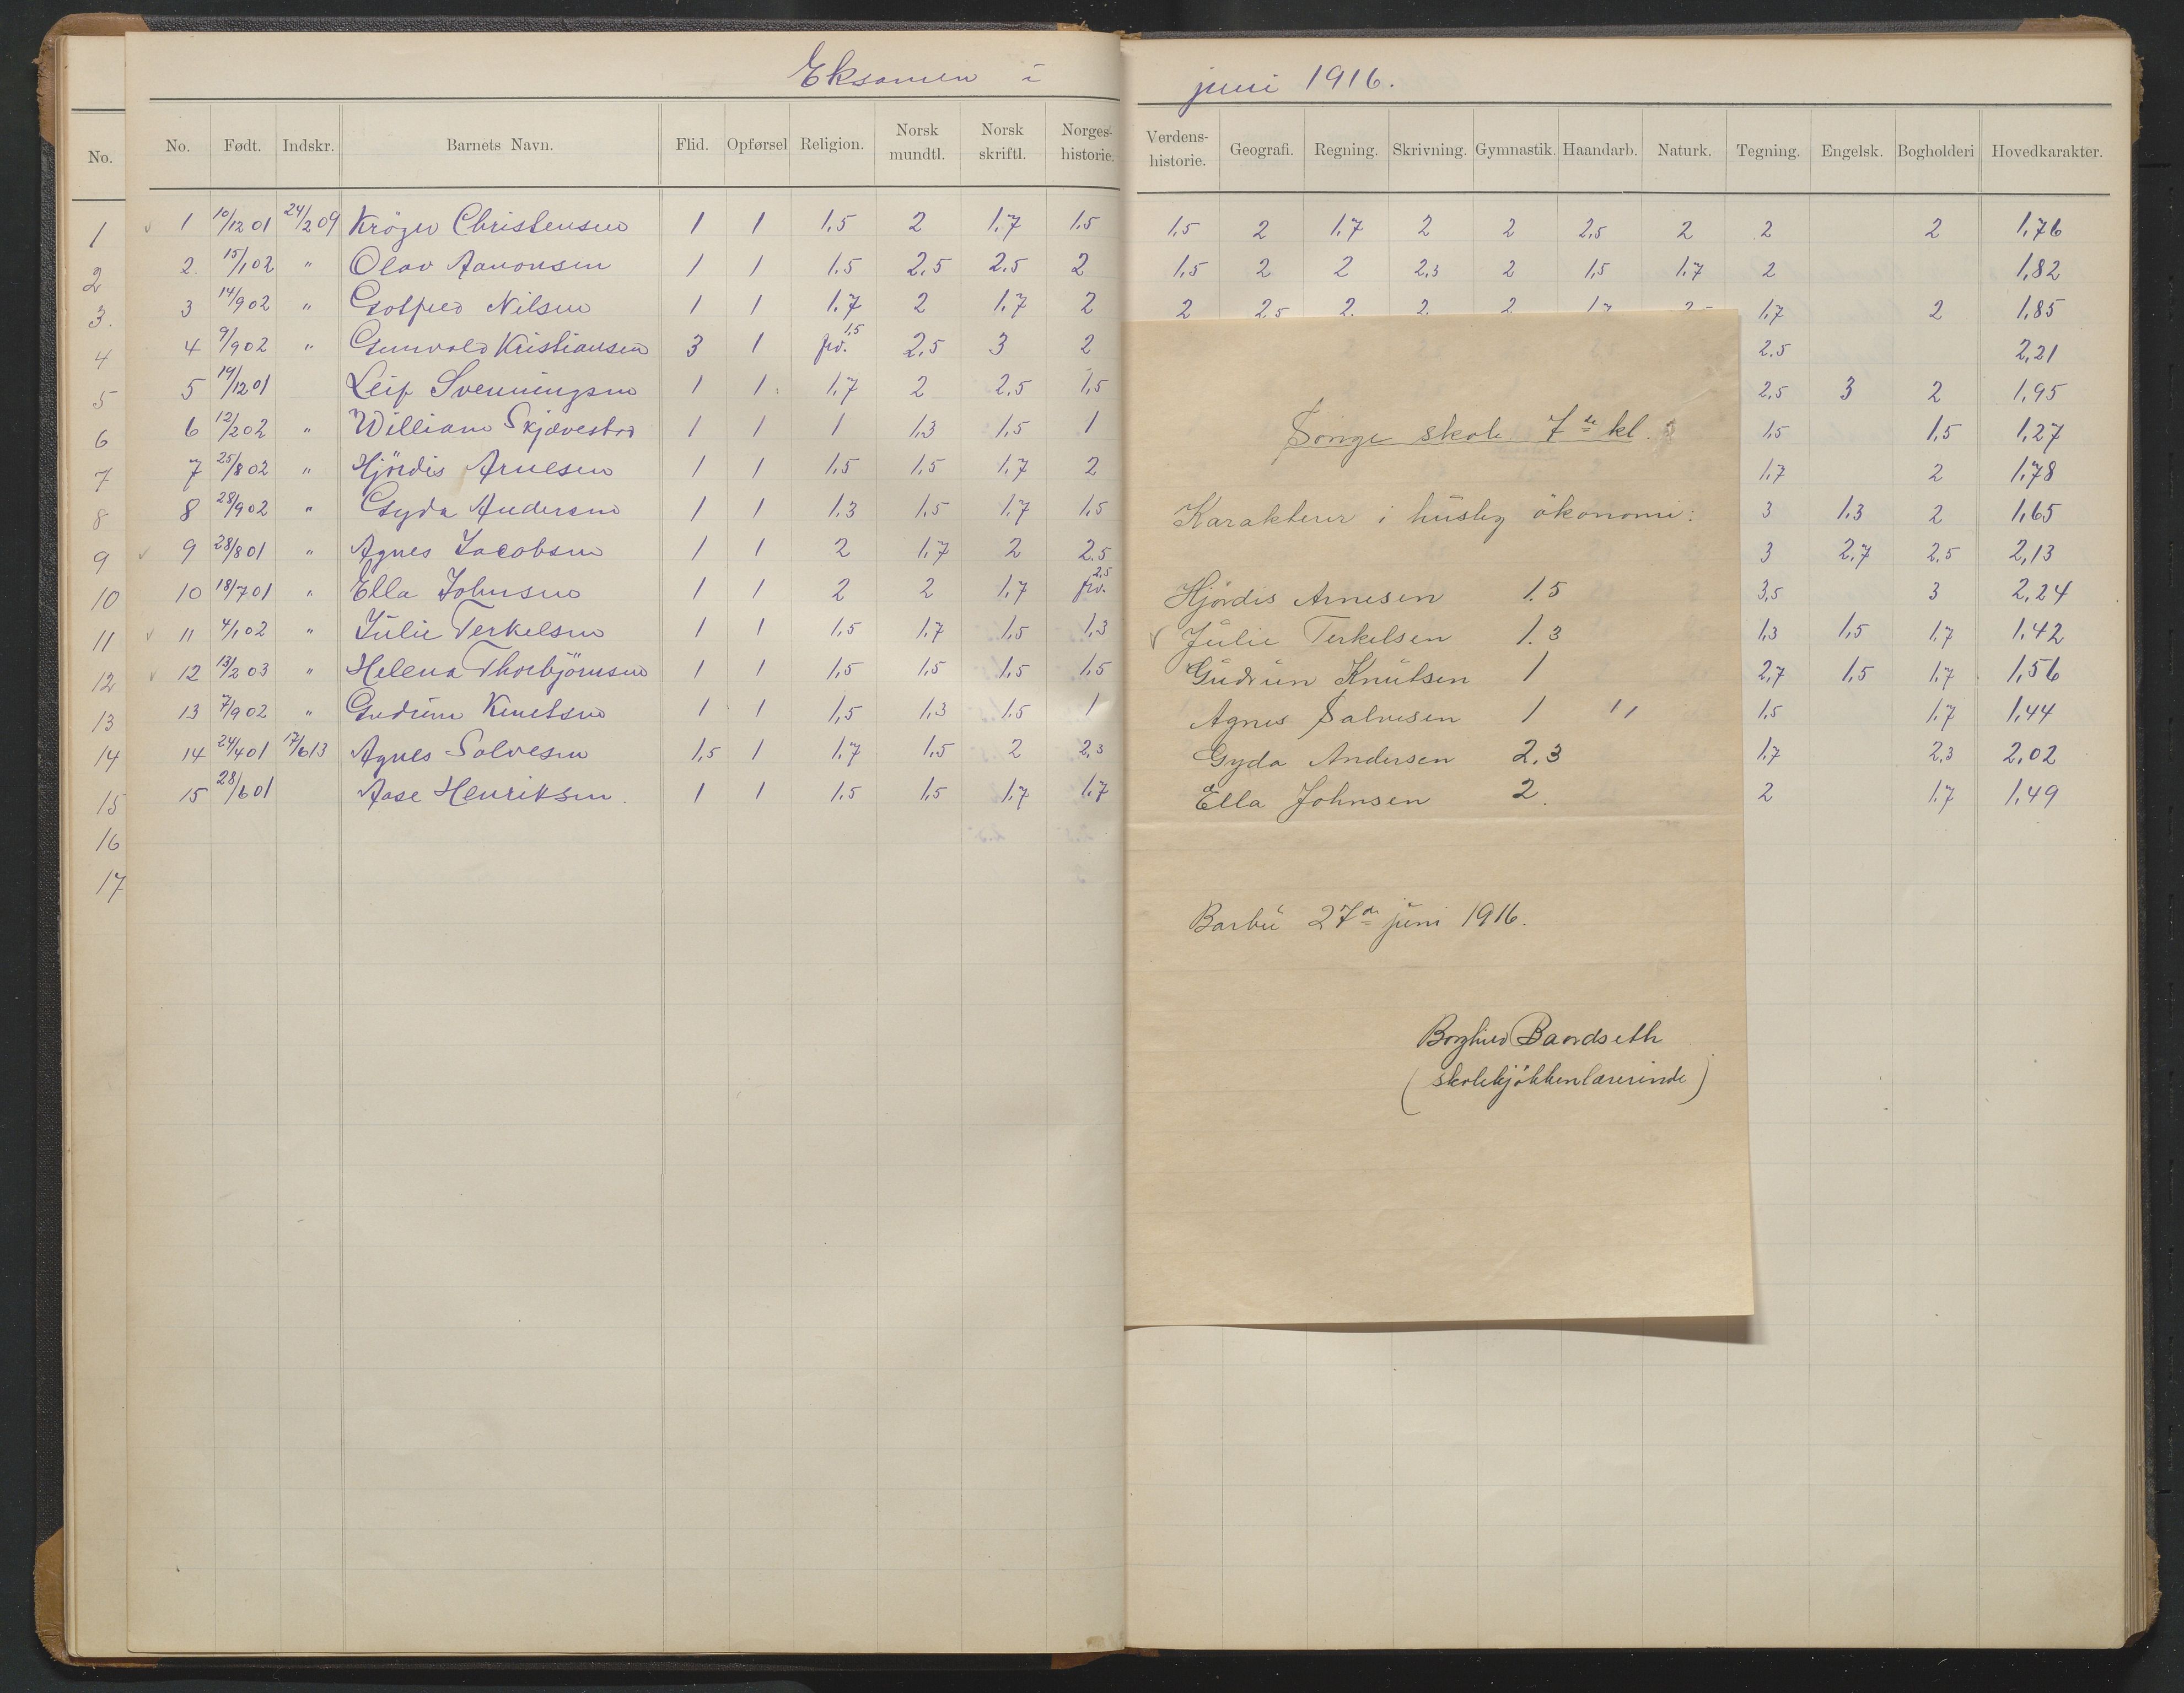 Eksamen i juni 1916.
No. No. Født. Indskr. Barnets Navn. Flid. Opførsel Religion. Norsk mundtl. Norsk skriftl. Norges-historie. Verdens-historie. Geografi. Regning. Skrivning. Gymnastik. Haandarb. Naturk. Tegning. Engelsk. Bogholderi Hovedkarakter.
1 ✓ 1 10/12 01 24/2 09 Kröger Christensen 1 1 1,5 2 1,7 1,5 1,5 2 1,7 2 2 2,5 2 2 2 1,76
2 2. 15/1 02 " Olav Aanonsen 1 1 1.5 2,5 2.5 2 1,5 2 2 2,3 2 1,5 1,7 2 1,82
3. 3 14/9 02 " Gotfred Nilsen 1 1 1.7 2 1,7 2 2 2,5 2. 2. 2 1,7 2 2 1,85
4 4 9/9 02 " Gunvald Kristiansen 3 1 frv. 1,5 2,5 3 2 2.5 2,21
5 5 19/12 01 Leif Svenningsen 1 1 1,7 2 2,5 1,5 2,5 3 2 1,95
6 6 12/2 02 " William 1 1 1 1,3 1,5 1 1,5 1,5 1,27
7 7 25/8 02 " Hjördis Arnesen 1 1 1,5 1,5 1,7 2 1,7 2 1,78
8 8 28/9 02 " Gyda Andersen 1 1 1.3 1,5 1,7 1,5 3 1,3 2 1,65
9 ✓ 9 28/8 01 " Agnes Jacobsen 1 1 2 1,7 2 2.5 3 2,7 2,5 2,13
10 10 18/7 01 " Ella Johnsen 1 1 2 2 1,7 frv. 2,5 3,5 3 2,24
11 ✓ 11 4/1 02 " Julie Terkelsen 1 1 1,5 1,7 1,5 1,3 1,3 1,5 1,7 1,42
12 ✓ 12 13/2 03 " Helena Thorbjörnsen 1 1 1,5 1,5 1,5 1,5 2,7 1,5 1,7 1,56
13 13 7/9 02 " Gudrun Knutsen 1 1 1,5 1,3 1.5 1 1,5 1,7 1,44
14 14 24/4 01 17/6 13 Agnes Salvesen 1,5 1 1,7 1,5 2 2,3 1,7 2,3 2,02
15 15 28/6 01 Aase Henriksen. 1 1 1.5 1,5 1,7 1,7 2 1,7 1,49
16
17
Songe skole 7de kl.
Karakterer i huslig ökonomi:
Hjördis Arnesen 1.5
✓ Julie Terkelsen 1.3
Gudrun Knutsen 1
Agnes Salvesen 1 "
Gyda Andersen 2,3
Ella Johnsen 2.
Barbu 27de juni 1916.
Borghild Bandseth
(skolekjökkenlærerinde)